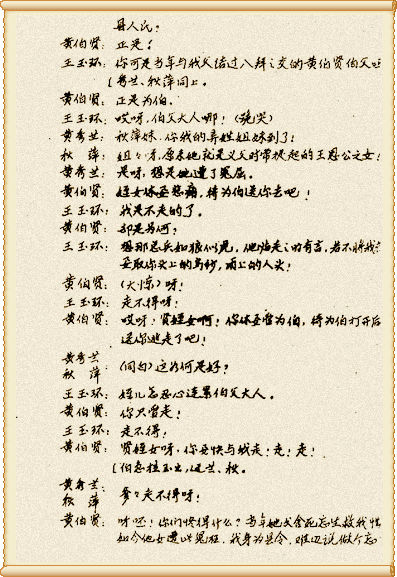 县人氏?
黄伯贤: 正是!
王玉环: 你可是当年与我父结过八拜之交的黄伯贤伯父吗
〔秀兰、秋萍同上。
黄伯贤: 正是为伯。
王玉环: 哎呀,伯父大人哪!(跪哭)
黄秀兰: 秋萍妹,你我的异姓姐妹到了!
秋 萍: 姐姐呀,原来她就是义父时常提起的王恩公之女!
黄秀兰: 是呀,想是她遭了冤屈。
黄伯贤: 侄女休要悲痛,待为伯送你去吧!
王玉环: 我是不走的了。
黄伯贤: 却是为何?
王玉环: 想那恶兵如狼似虎,他临走之时有言,若不将我
要取你头上的乌纱,项上的人头!
黄伯贤: (大惊)呀!
王玉环: 走不得呀!
黄伯贤: 哎呀!贤侄女啊!你休要管为伯,待为伯打开后
送你逃走了吧!
黄秀兰
秋 萍: (同白)这为何是好?
王玉环: 侄儿怎忍心连累伯父大人。
黄伯贤: 你只管走!
王玉环: 走不得!
黄伯贤: 贤侄女呀,你要快与我走!走!走!
〔伯贤拉玉出,遇兰、秋。
黄秀兰
秋 萍: 爹爹走不得呀!
黄伯贤: 呀呸!你们懂得什么?当年她父舍死忘生救我性
如今他女遭此冤枉,我身为县令,难迈说做个忘